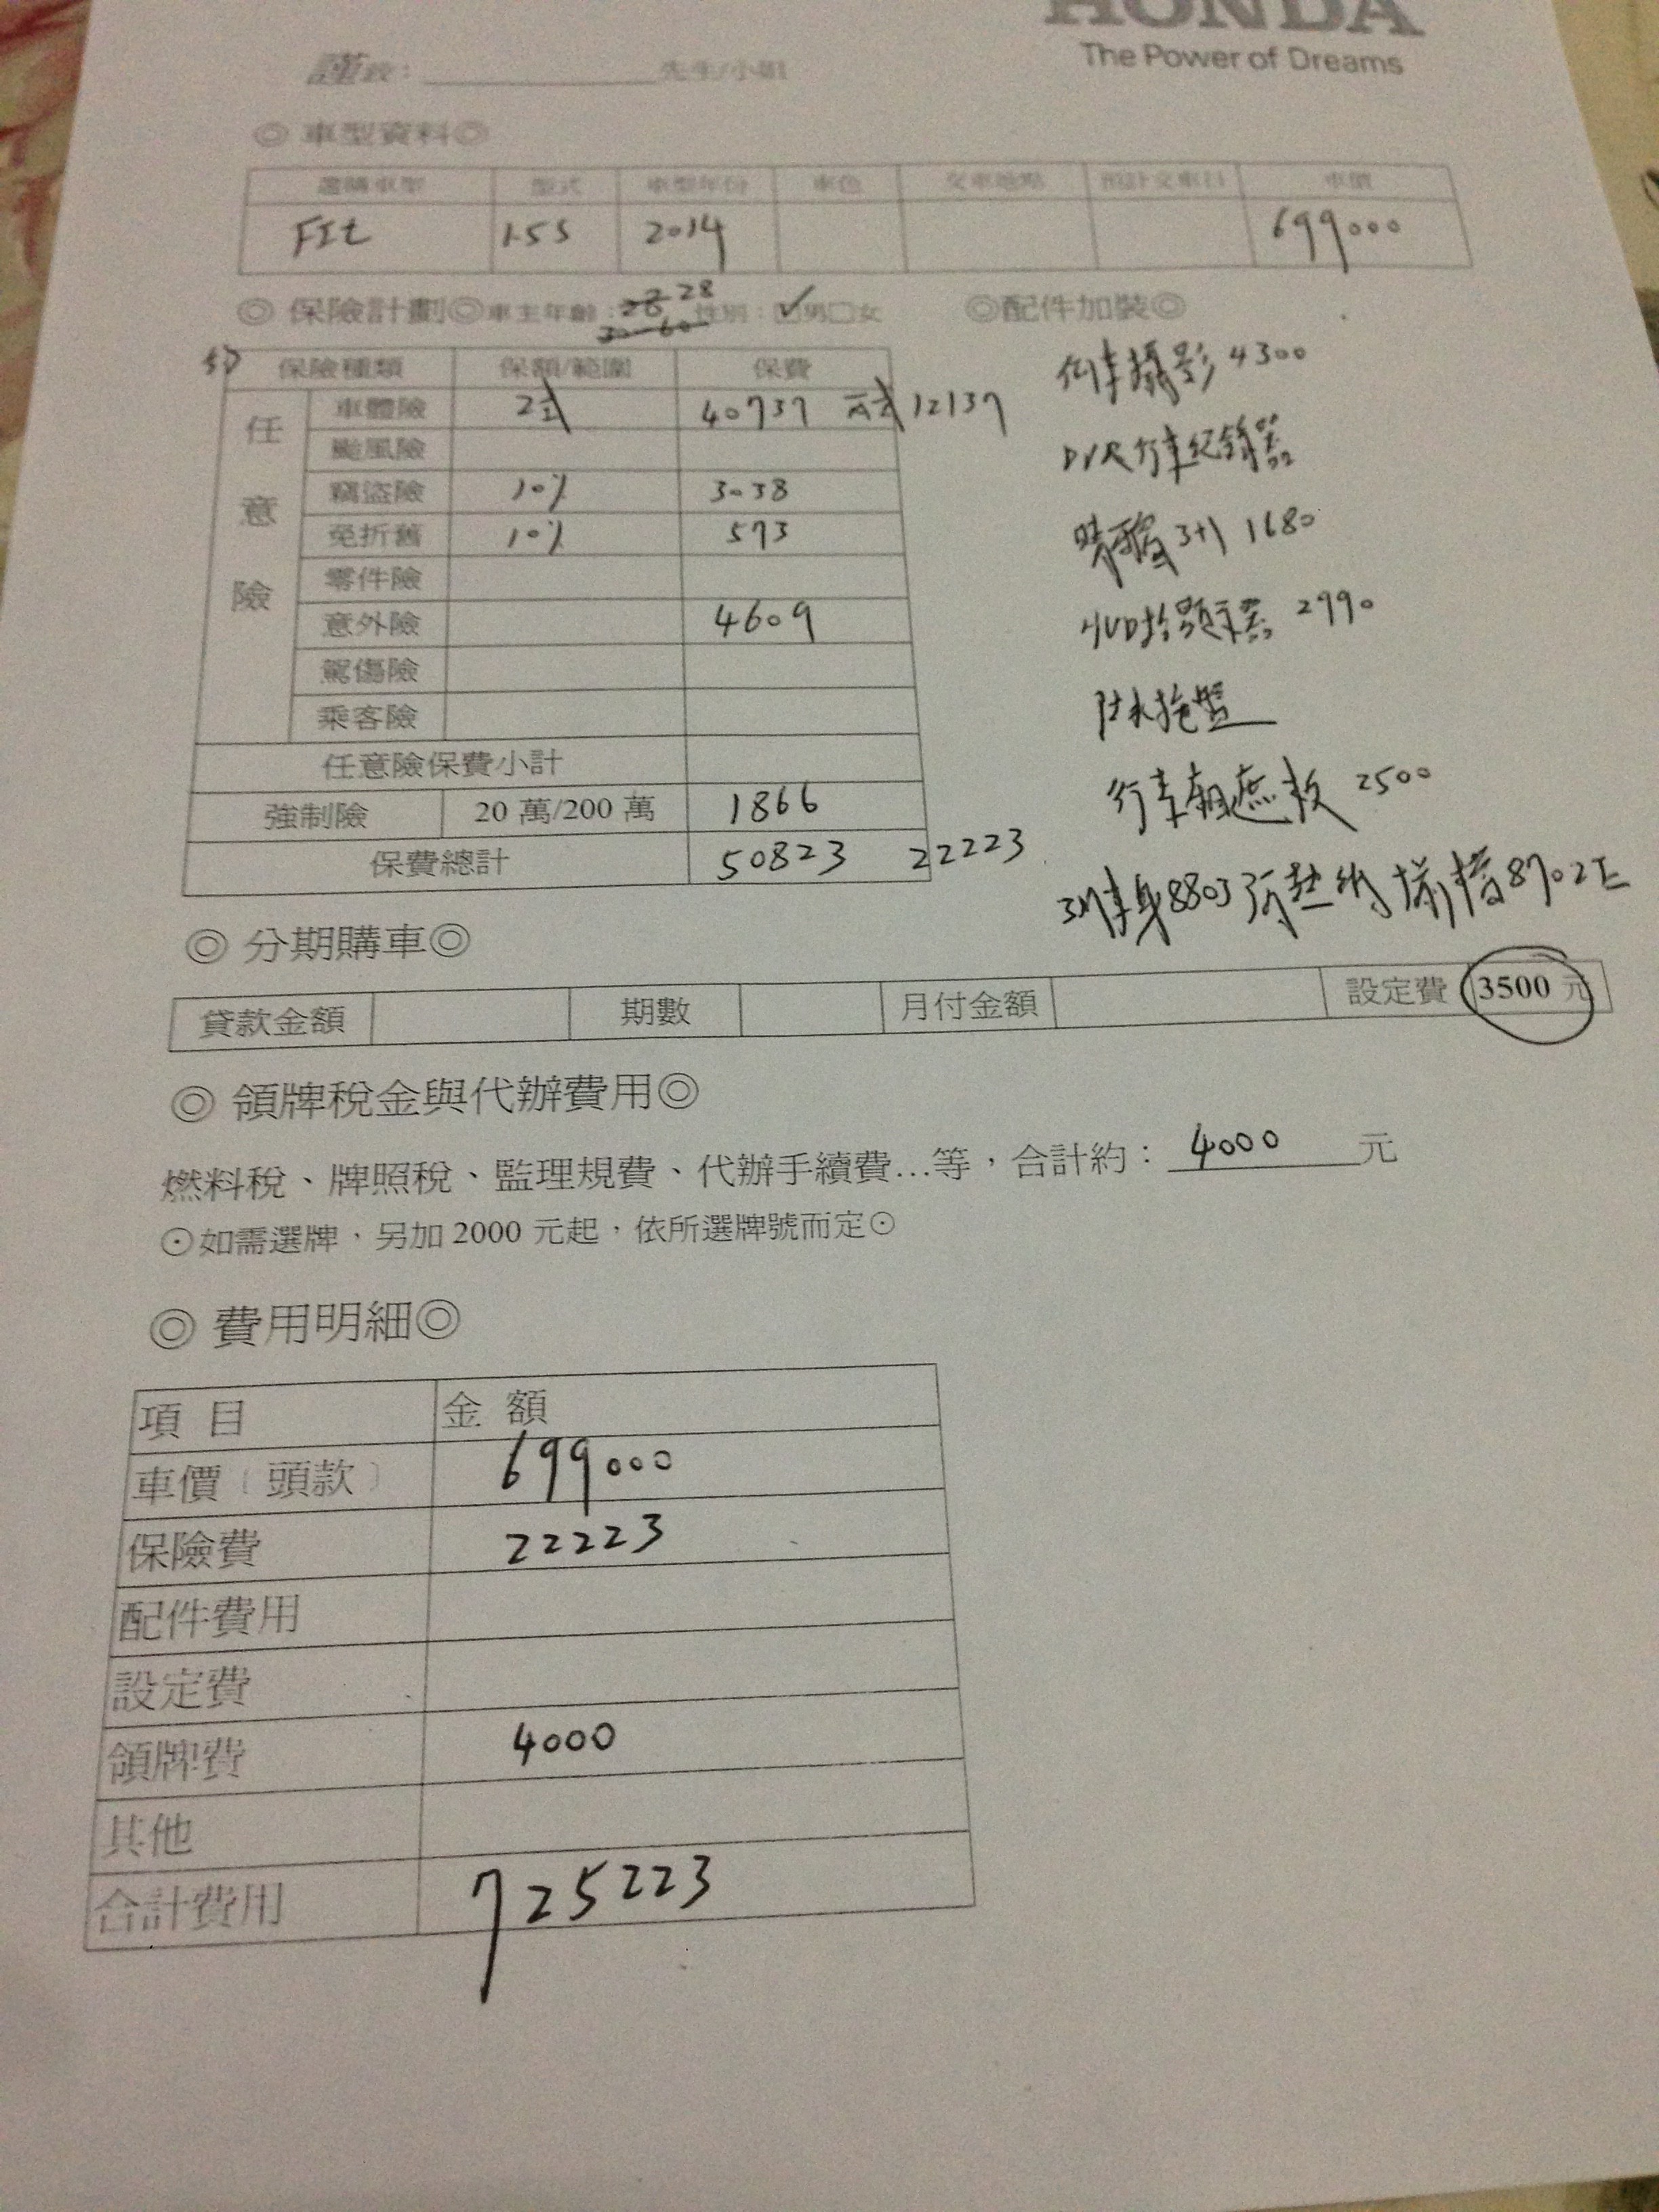 HONDA
The Power of Dreams
謹致：先生/小姐
◎ 車型資料◎
選購車型 型式 車型年份 車色 交車地點 預計交車日 車價
FIt 1.5S 2014 699000
◎ 保險計劃◎車主年齡：28 性別：☑男□女 ◎配件加裝◎
30-60
保險種類 保額/範圍 保費
任意險
車體險 乙式 40737 丙式 12137
颱風險
竊盜險 10% 3038
免折舊 10% 573
零件險
意外險 4609
駕傷險
乘客險
任意險保費小計
強制險 20 萬/200 萬 1866
保費總計 50823 22223
倒車攝影 4300
DVR行車紀錄器
晴雨窗 3+1 1680
HUD抬頭顯示器 2990
防水拖盤
行李廂遮板 2500
3M車身8803 隔熱紙
◎ 分期購車◎
貸款金額 期數 月付金額 設定費 3500 元
◎ 領牌稅金與代辦費用◎
燃料稅、牌照稅、監理規費、代辦手續費...等，合計約：4000元
⊙如需選牌，另加 2000 元起，依所選牌號而定⊙
◎ 費用明細◎
項 目 金 額
車價（頭款） 699000
保險費 22223
配件費用
設定費
領牌費 4000
其他
合計費用 725223